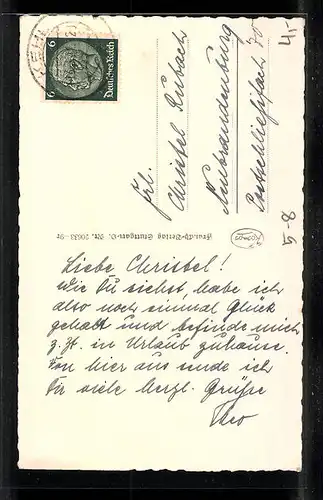 KEHL
6 Deutsches Reich 6
4,-
Frl.
Christel Rubach
Neubrandenburg
Postschließfach 70
5-8
Franckh-Verlag Stuttgart-O. Nr. 20633-9r
Liebe Christel!
Wie Du siehst, habe ich
also noch einmal Glück
gehabt und befinde mich
z. Zt. in Urlaub zuhause.
Von hier aus sende ich
Dir viele herzl. Grüße
Theo